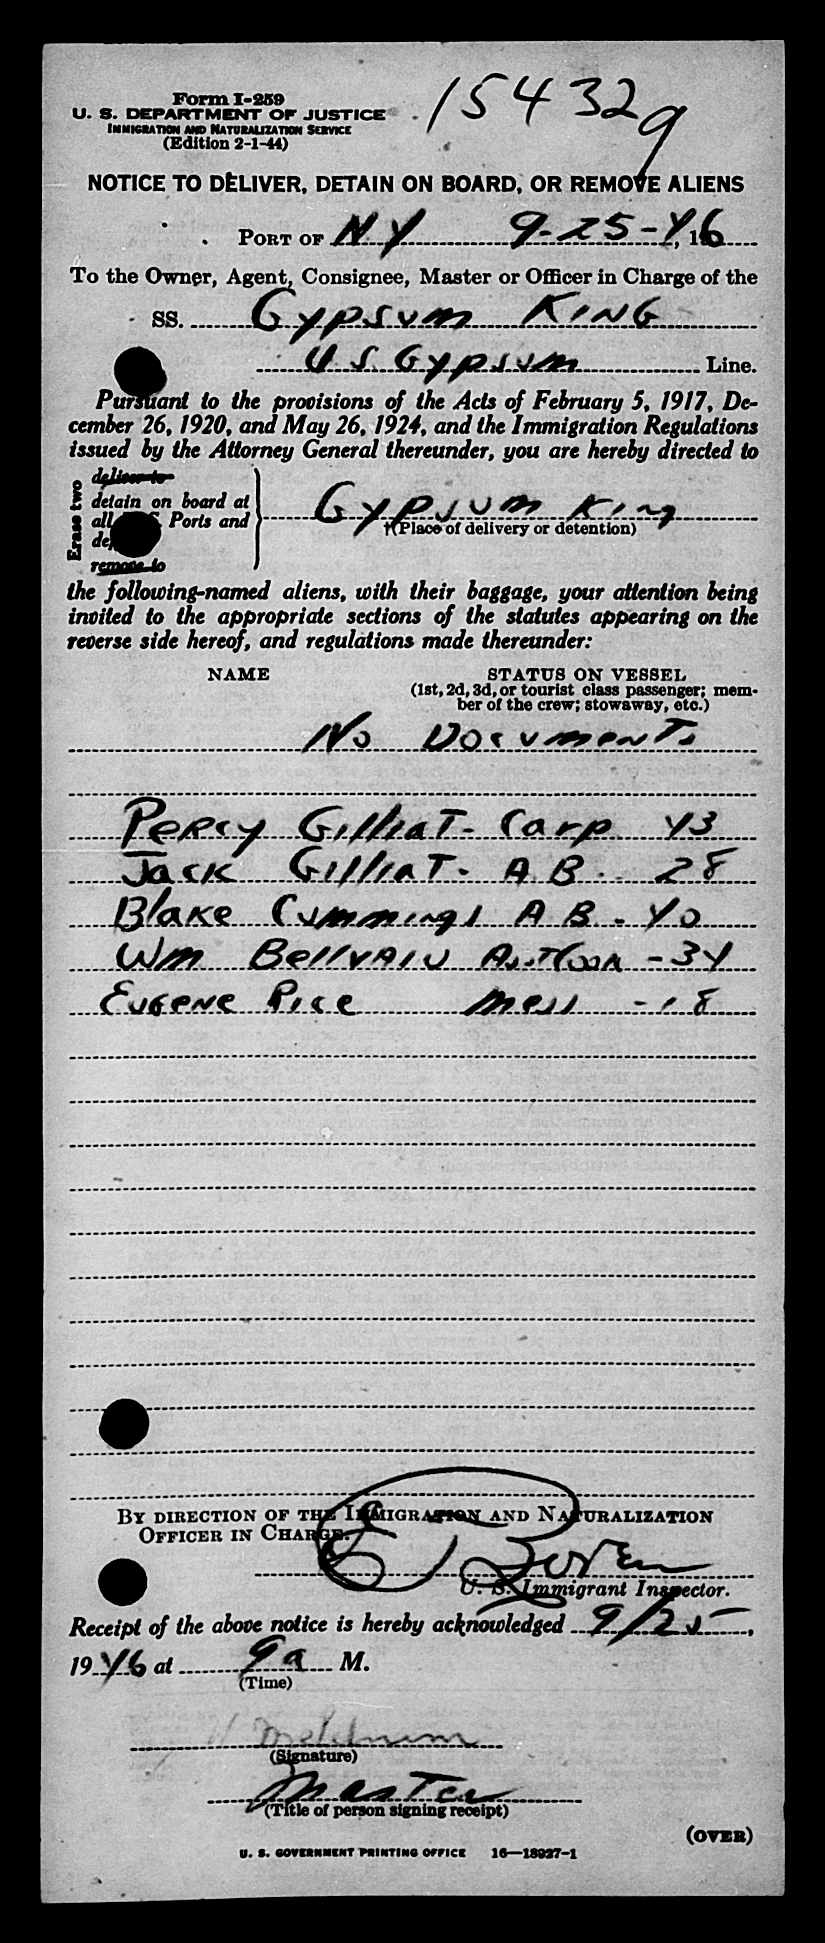 Form I-259
U. S. DEPARTMENT OF JUSTICE
IMMIGRATION AND NATURALIZATION SERVICE
(Edition 2-1-44)
15432
9
NOTICE TO DELIVER, DETAIN ON BOARD, OR REMOVE ALIENS
PORT OF NY 9-25-46, 1
To the Owner, Agent, Consignee, Master or Officer in Charge of the
SS. Gypsum KING
U S Gypsum Line.
Pursuant to the provisions of the Acts of February 5, 1917, De-
cember 26, 1920, and May 26, 1924, and the Immigration Regulations
issued by the Attorney General thereunder, you are hereby directed to
Erase two
deliver to
detain on board at
all Ports and
remove to
Gypsum King
(Place of delivery or detention)
the following-named aliens, with their baggage, your attention being
invited to the appropriate sections of the statutes appearing on the
reverse side hereof, and regulations made thereunder:
NAME STATUS ON VESSEL
(1st, 2d, 3d, or tourist class passenger; mem-
ber of the crew; stowaway, etc.)
No Documents
Percy Gilliat - Carp 43
Jack Gilliat - A B - 28
Blake Cummings A B - 40
Wm Bellvaiu Asst Cook - 34
Eugene Rice Mess - 18
BY DIRECTION OF THE IMMIGRATION AND NATURALIZATION
OFFICER IN CHARGE.
U. S. Immigrant Inspector.
Receipt of the above notice is hereby acknowledged 9/25,
1946 at 9a M.
(Time)
(Signature)
Master
(Title of person signing receipt)
(OVER)
U. S. GOVERNMENT PRINTING OFFICE 16—18927-1